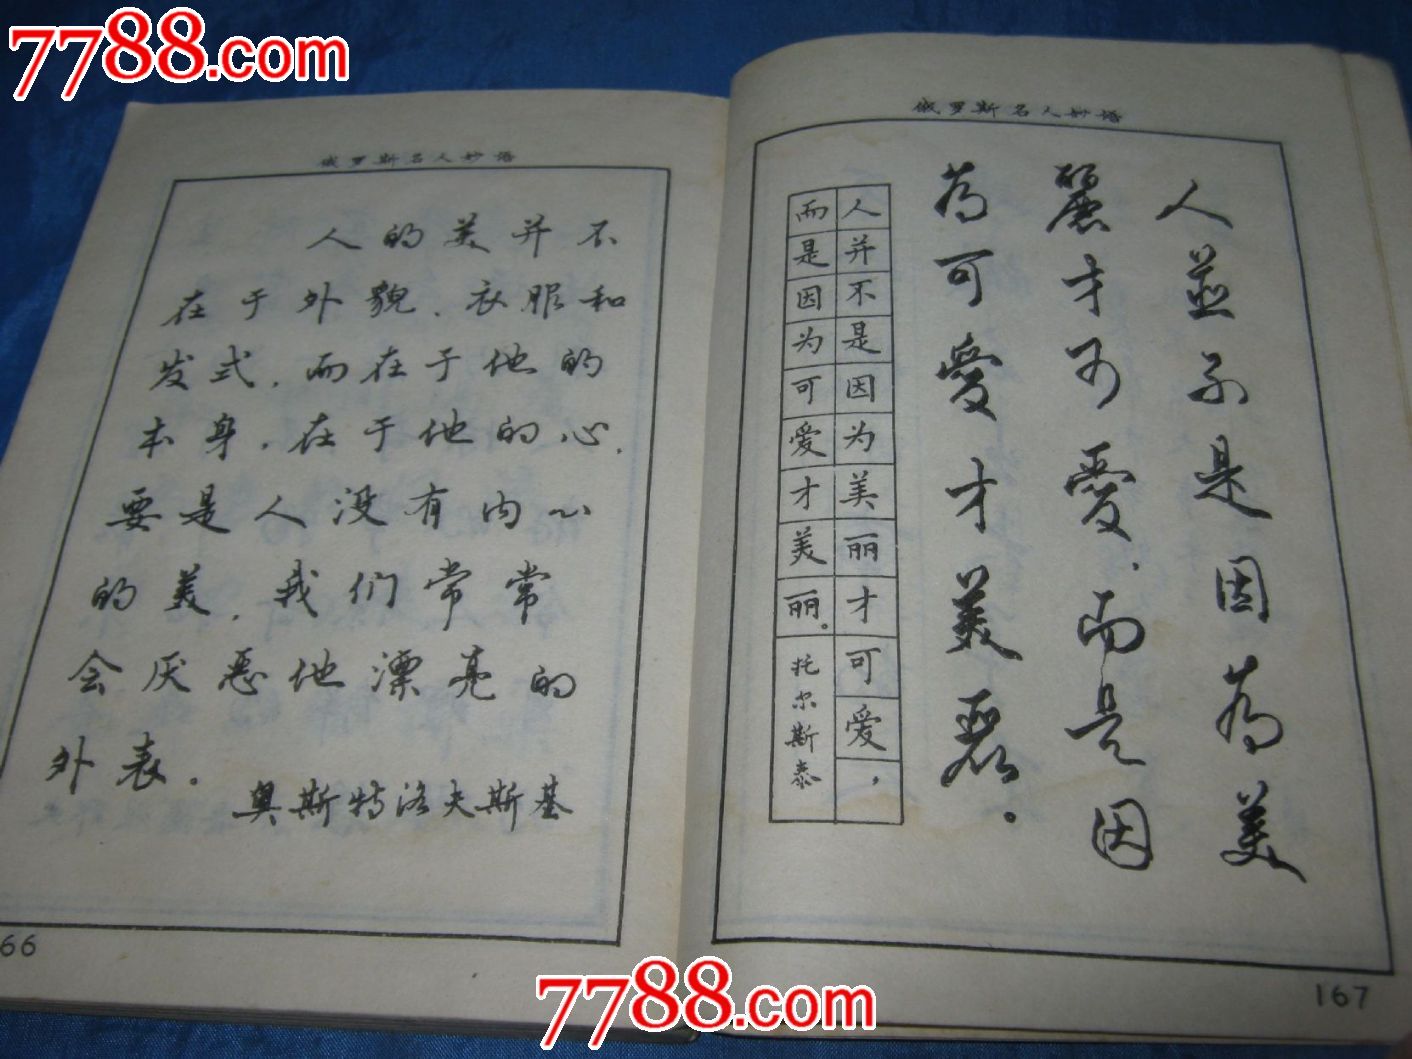 7788.com
俄罗斯名人妙语
人的美并不
在于外貌、衣服和
发式,而在于他的
本身,在于他的心,
要是人没有内心
的美,我们常常
会厌恶他漂亮的
外表。
奥斯特洛夫斯基
66
俄罗斯名人妙语
人並不是因為美
麗才可愛,而是因
為可愛才美麗。
人并不是因为美丽才可爱,
而是因为可爱才美丽。托尔斯泰
167
7788.com